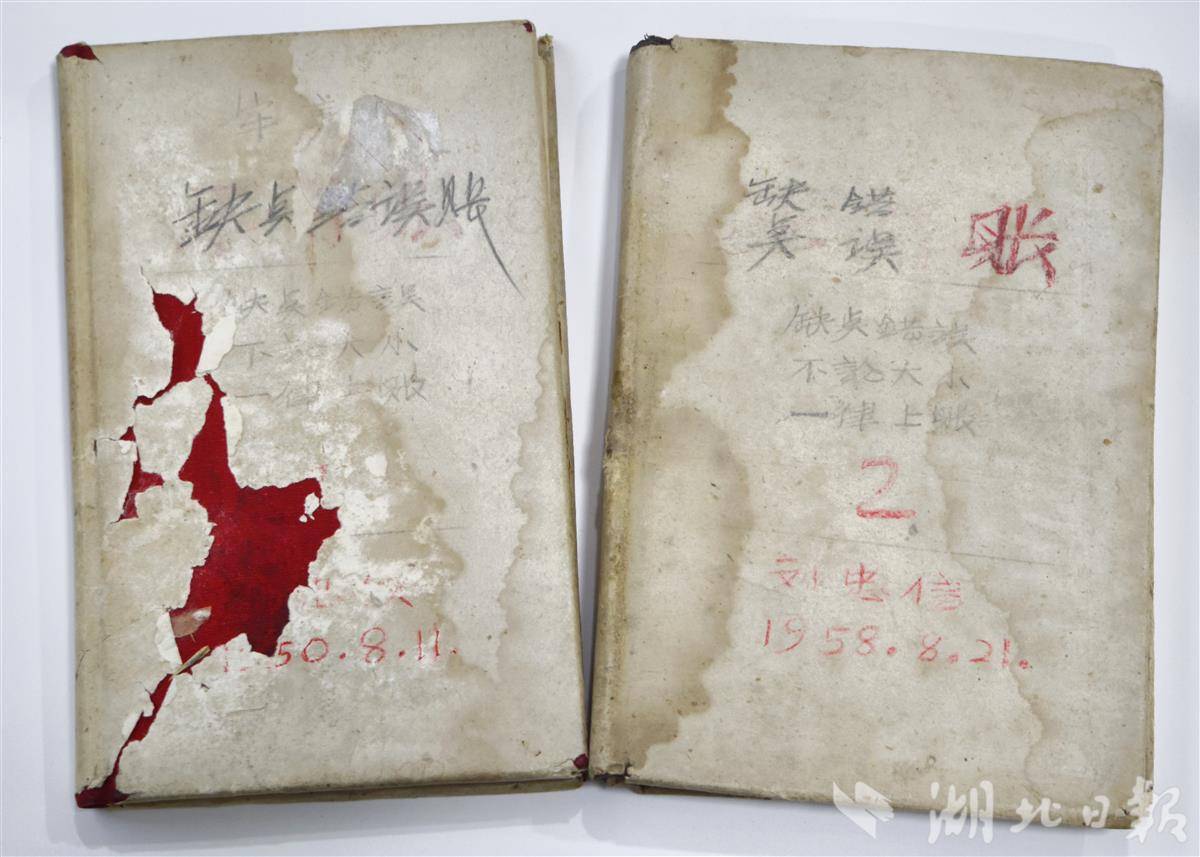 缺点错误账
缺点错误
不 大小
一律上账
1950.8.11.
缺点
错误
账
缺点错误
不論大小
一律上账
2
刘忠信
1958.8.21.
湖北日報